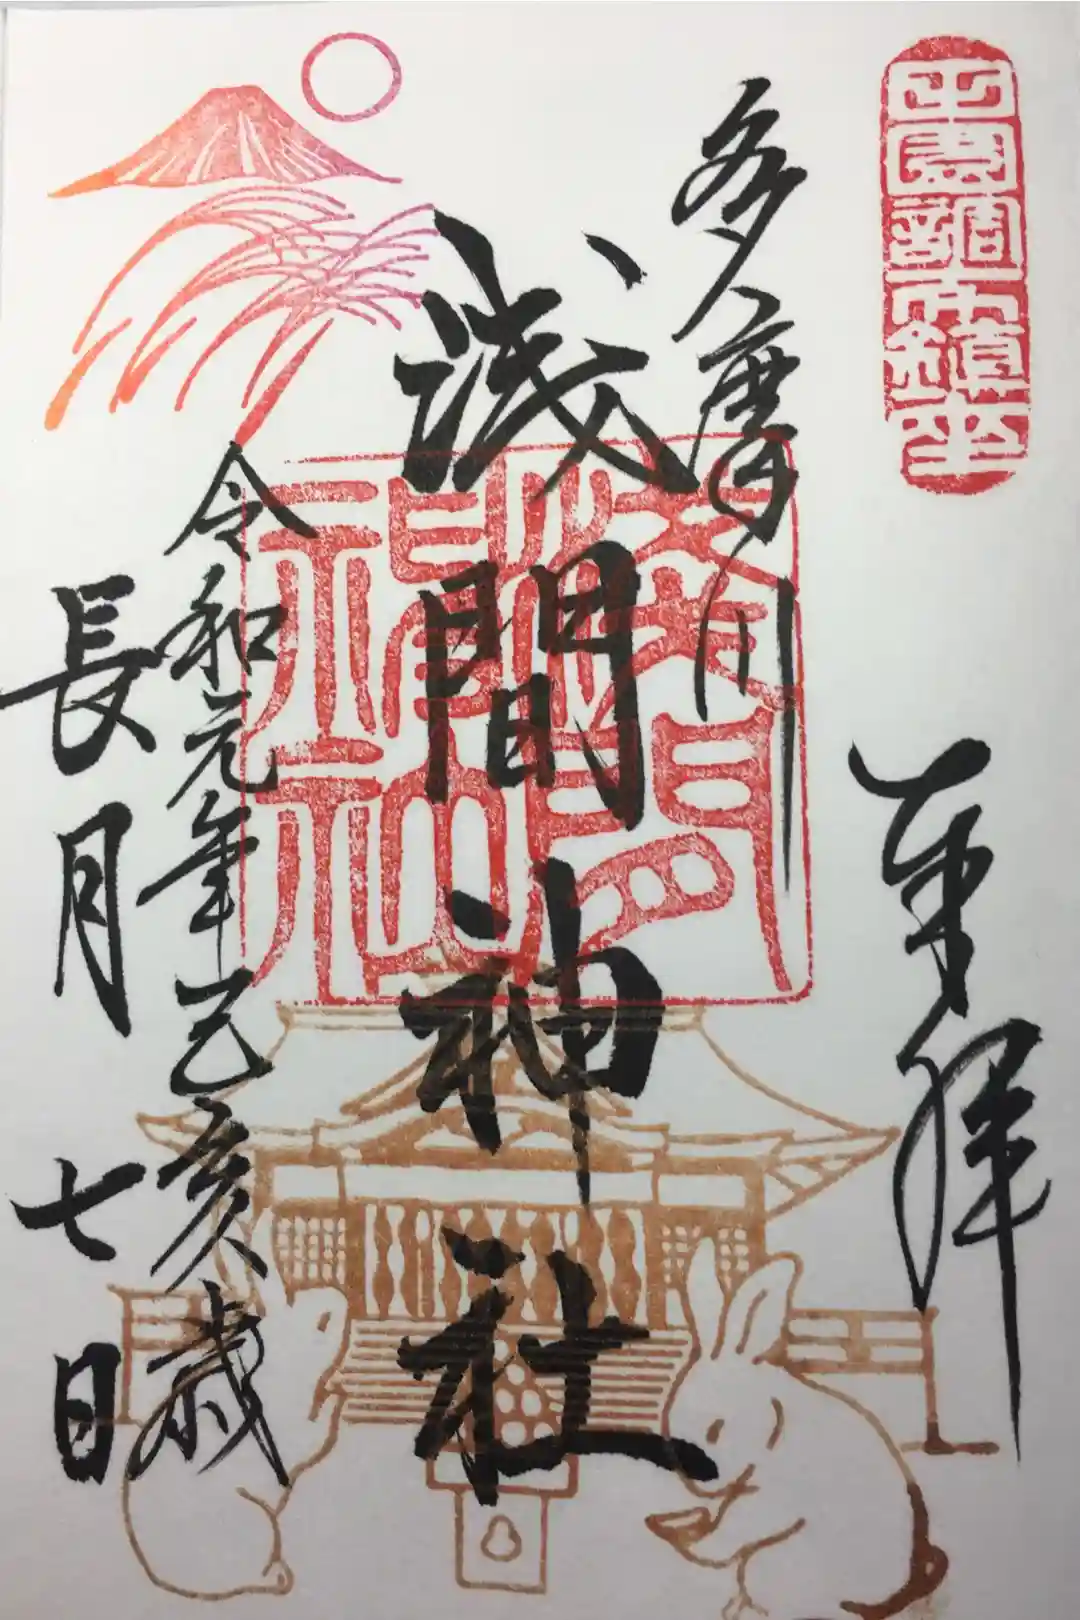 田園調布鎮座
奉拝
多摩川
浅間神社
令和元年己亥歳
長月七日